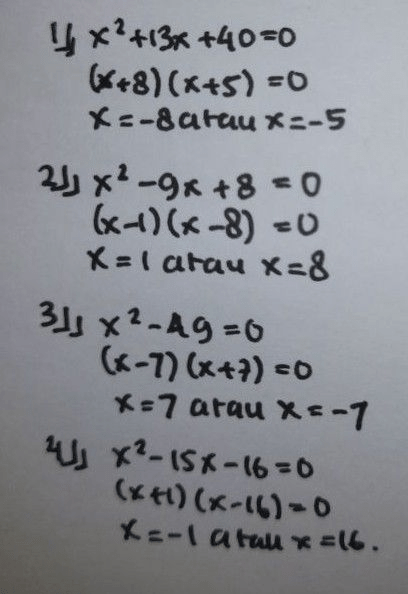 1) x²+13x+40=0
(x+8)(x+5)=0
x=-8 atau x=-5
2) x²-9x+8=0
(x-1)(x-8)=0
x=1 atau x=8
3) x²-49=0
(x-7)(x+7)=0
x=7 atau x=-7
4) x²-15x-16=0
(x+1)(x-16)=0
x=-1 atau x=16.